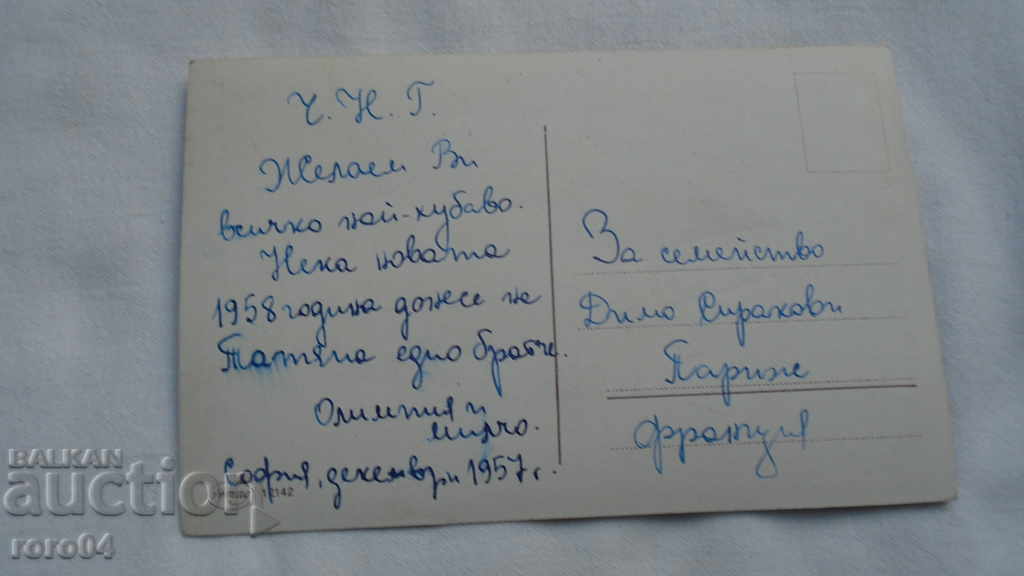 Ч. Н. Г.
Желаем Ви
всичко най-хубаво.
Нека новата
1958 година донесе на
Татяна едно братче.
Олимпия и
Мирчо.
София, декември 1957 г.
12142
За семейство
Димо Сиракови
Париж
Франция
BALKAN
auction
roro04